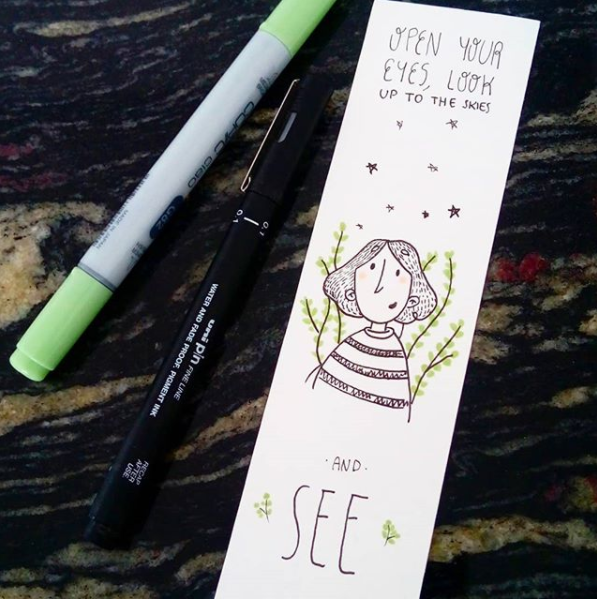 OPEN YOUR
EYES, LOOK
UP TO THE SKIES
·AND·
SEE
COPIC ciao
0.1
0.1
uni pin FINE LINE
WATER AND FADE PROOF, PIGMENT INK
RECAP
AFTER
USE